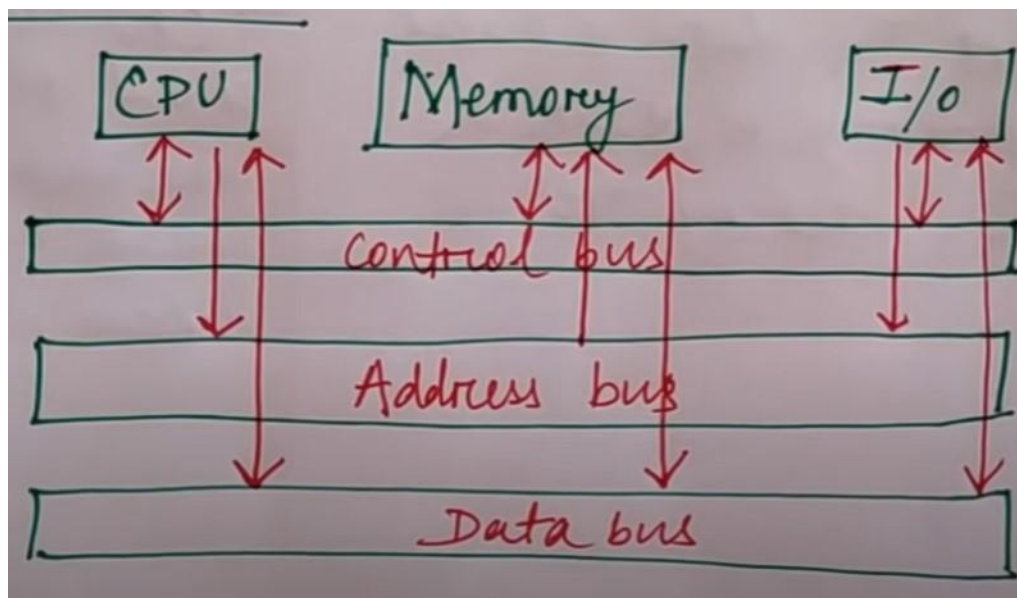 CPU
Memory
I/o
Control bus
Address bus
Data bus